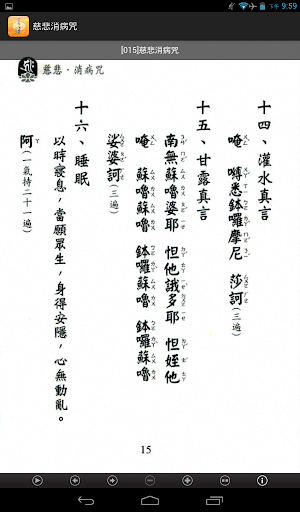 下午 9:59
慈悲消病咒
[015]慈悲消病咒
慈悲·消病咒
十四、灌水真言
唵 嚩悉鉢囉摩尼 莎訶(三遍)
十五、甘露真言
南無蘇嚕婆耶 怛他誐多耶 怛姪他
唵 蘇嚕蘇嚕 鉢囉蘇嚕 鉢囉蘇嚕
娑婆訶(三遍)
十六、睡眠
以時寢息,當願眾生,身得安隱,心無動亂。
阿(一氣持二十一遍)
15